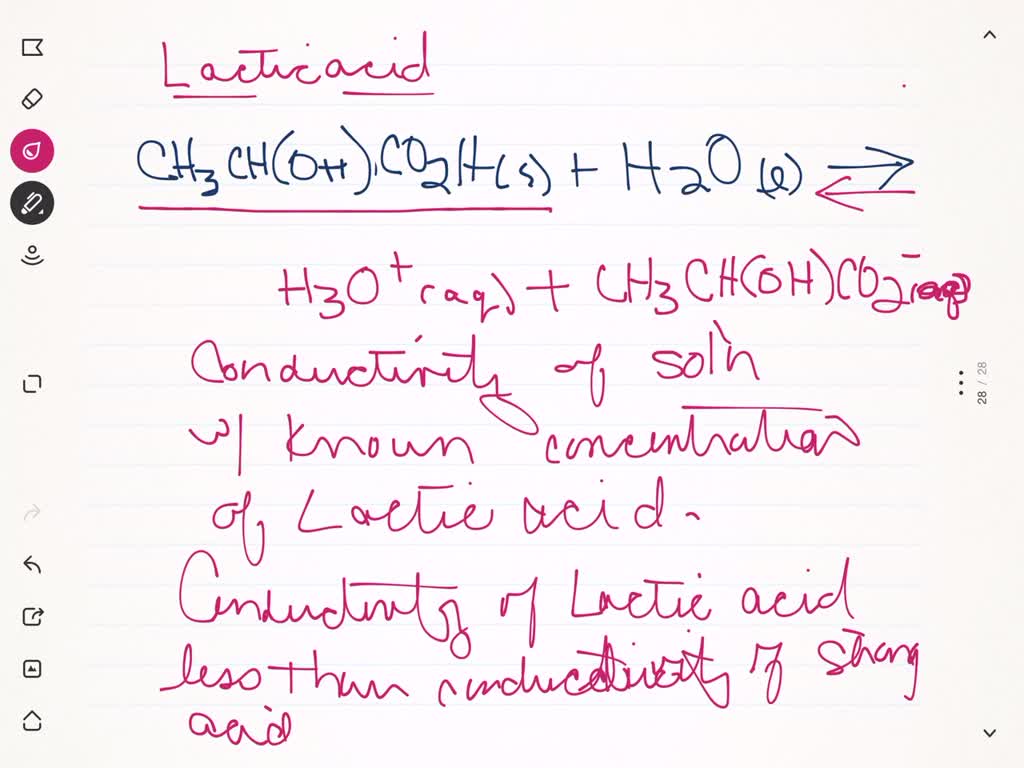 Lactic acid
CH3CH(OH).CO2H(s) + H2O(l) ⇌
H3O+(aq) + CH3CH(OH)CO2-(aq)
Conductivity of sol'n
w/ known concentration
of Lactic acid.
Conductivity of Lactic acid
less than conductivity of strong
acid
28 / 28